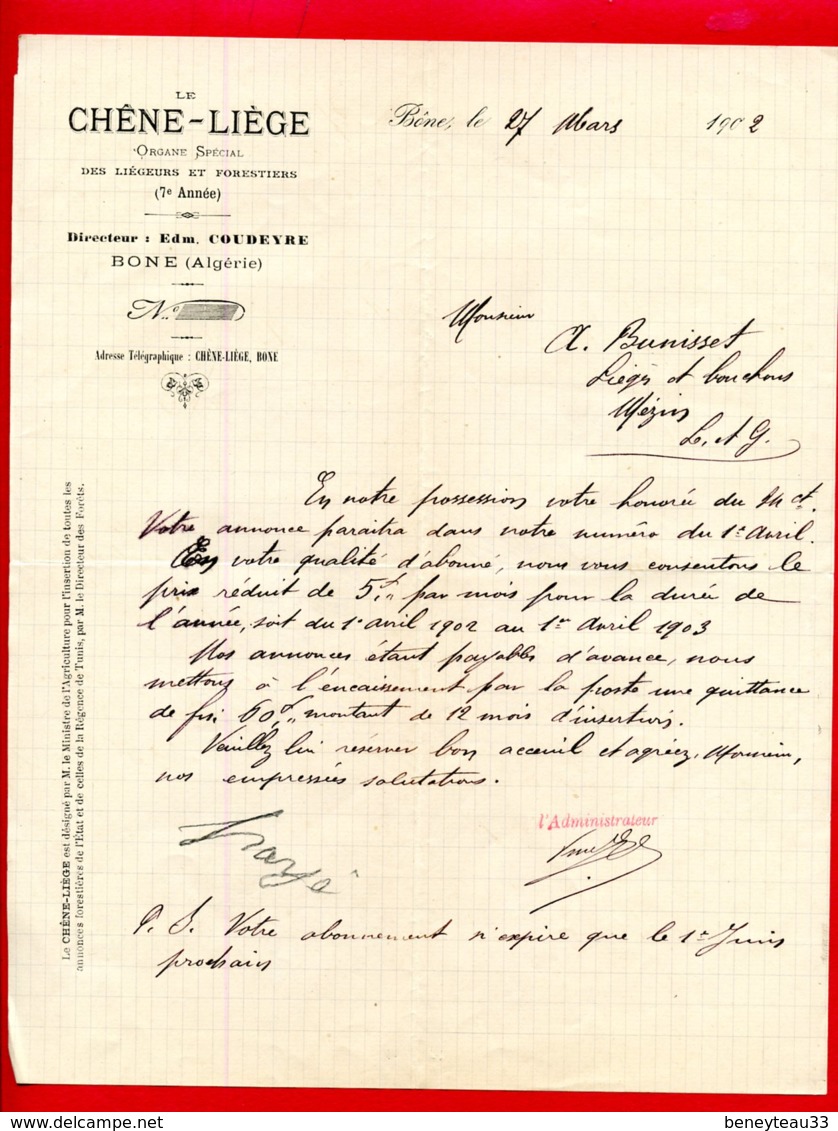 LE
CHÊNE-LIÈGE
ORGANE SPÉCIAL
DES LIÉGEURS ET FORESTIERS
(7e Année)
Directeur : Edm. COUDEYRE
BONE (Algérie)
N.o
Adresse Télégraphique : CHÊNE-LIÈGE, BONE
Bône, le 27 Mars 1902
Monsieur
A. Bunisset
Lièges et bouchons
Mézin
L. et G.
En notre possession votre honorée du 24 ct.
Votre annonce paraitra dans notre numéro du 1er Avril.
En votre qualité d'abonné, nous vous consentons le
prix réduit de 5f,, par mois pour la durée de
l'année, soit du 1er avril 1902 au 1er Avril 1903
Nos annonces étant payables d'avance, nous
mettons à l'encaissement par la poste une quittance
de 60f,, montant de 12 mois d'insertions.
Veuillez lui réserver bon acceuil et agréez, Monsieur,
nos empressées salutations.
l'Administrateur
P. S. Votre abonnement n'expire que le 1er Juin
prochain
Le CHÊNE-LIÈGE est désigné par M. le Ministre de l'Agriculture pour l'insertion de toutes les
annonces forestières de l'État et de celles de la Régence de Tunis, par M. le Directeur des Forêts.
beneyteau33